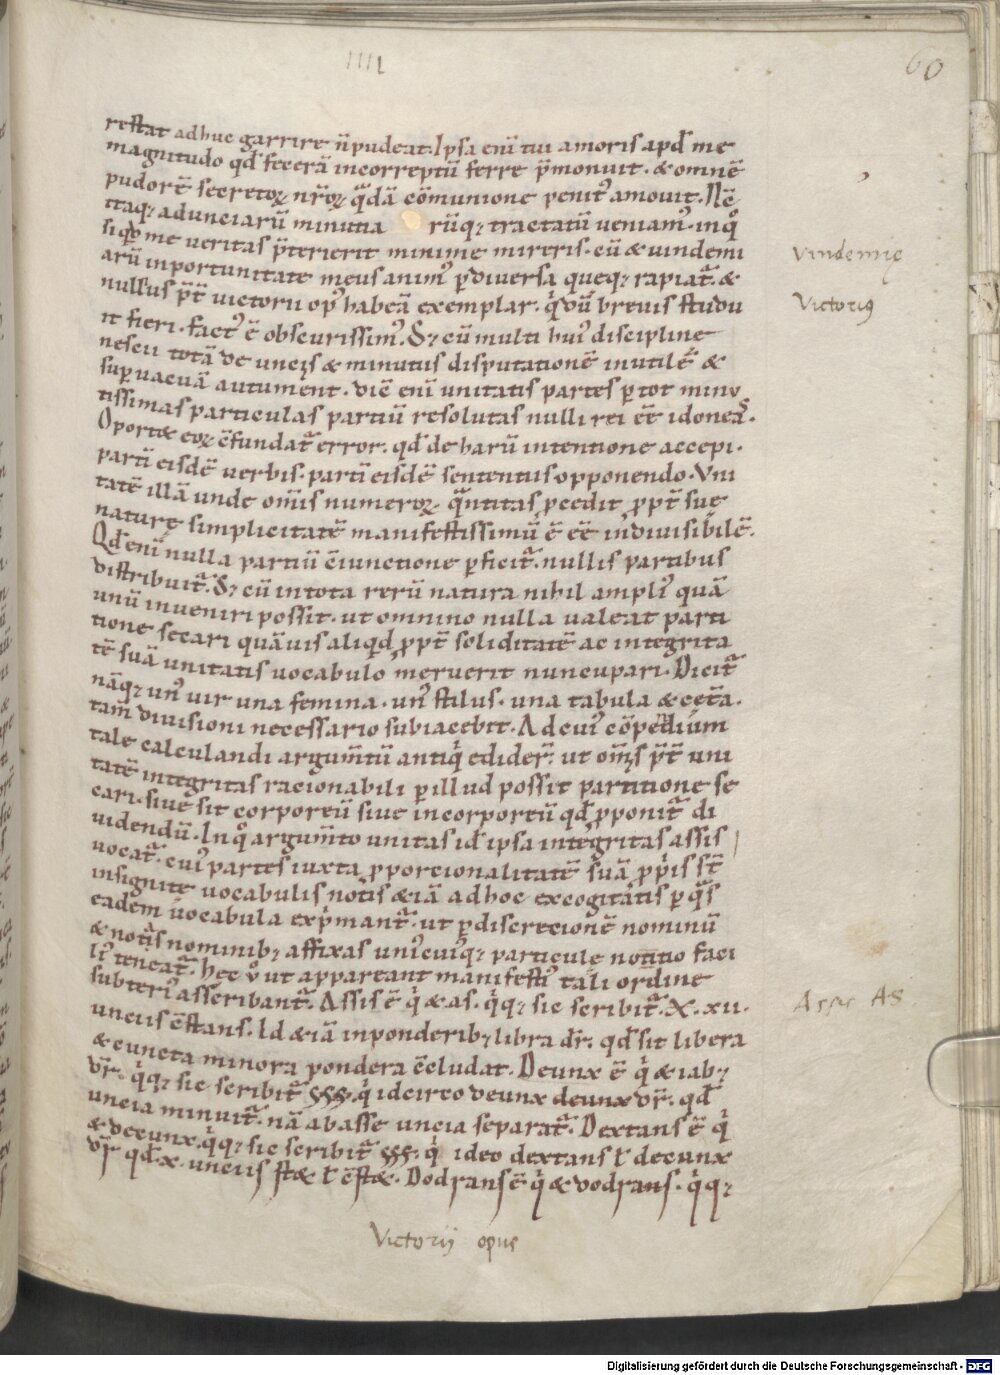 IIII
60
restat adhuc garrire n̄ pudeat. Ipsa eni᷎ tui amoris apđ me
magnitudo qđ fecerā incorreptū ferre p̄monuit. & omnē
pudorē secretoꝝ nr̄oꝝ q̄dā cōmunione penitꝰ amouit. Nē
itaqꝫ ad unciarū minutia rūqꝫ tractatū ueniamꝰ. in qͦ
si qͥd me ueritas p̄terierit minime mireris. cū & uindemi
arū inportunitate meus animꝰ ꝑ diuersa queqꝫ rapiat᷑. &
nullus p̄t᷑ uictorii opꝰ habeā exemplar. qͥ dū breuis studu
it fieri. factꝰ ē obscurissimꝰ. Sꝫ cū multi huiꝰ discipline
nescii totā de unciis & minutiis disputationē inutilē &
suꝑuacuā autument. dicē eni᷎ unitatis partes ꝑ tot minu
tissimas particulas partiū resolutas nulli rei eē idoneas.
Oport& eoꝝ c̄fundat᷑ error. qđ de harū intentione accepi.
parti᷎ eisdē uerbis. parti᷎ eisdē sententiis opponendo. Vni
tatē illā unde om̄is numeroꝝ q̄ntitas ꝓcedit ꝓpt᷑ sue
naturę simplicitatē manifestissimū ē eē indiuisibilē.
Qđ eni᷎ nulla partiū c̄iunctione ꝑficit᷑. nullis partibus
distribuit᷑. Sꝫ cū in tota rerū natura nihil ampliꝰ quā
unū inueniri possit. ut omnino nulla ualeat parti
tione secari quāuis aliqͥd ꝓpt᷑ soliditatē ac integrita
tē suā unitatis uocabulo meruerit nuncupari. Dicit᷑
nāqꝫ unꝰ uir una femina. unꝰ stilus. una tabula & cet᷑a.
tam̄ diuisioni necessario subiacebit. Ad cuiꝰ cōpēdium
tale calculandi argum̄tū antiqͥ edider̄. ut om̄is p̄t᷑ uni
tatē integritas racionabili ꝑ illud possit partitione se
cari. siue sit corporeū siue incorporeū qđ ꝓponit᷑ di
uidendū. In qͦ argum̄to unitas id ipsa integritas assis
uocat᷑. cuiꝰ partes iuxta ꝓporcionalitatē suā ꝓpͥis st̄
insignite uocabulis notis & iā ad hoc excogitatis ꝑ qͣs
eadem uocabula exp̄mant᷑. ut ꝑ discrecionē nominū
& notis nominibꝫ affixas unicuiqꝫ particule notitio faci
liꝰ teneat᷑. Hec uͦ ut appareant manifestiꝰ tali ordine
subteriꝰ asscribant᷑. Assis ē qͥ & as. qͥqꝫ sic scribit᷑. X. xii.
unciis c̄stans. Id & iā in ponderibꝫ libra dr̄. qđ sit libera
& cuncta minora pondera c̄cludat. Deunx ē qͥ & iabꝫ
dr̄. qͥqꝫ sic scribit᷑ SSS. qͥ idcirco deunx deunx dr̄. qđ
uncia minuit᷑. nā ab asse uncia separat᷑. Dextans ē qͥ
& decunx. qͥqꝫ sic scribit᷑ SSS. qͥ ideo dextans ł decunx
dr̄ qđ. x. unciis st& ł c̄st&. Dodrans ē qͥ & dodrans. qͥqꝫ
vindemię
Victoriꝰ
Asse AS
Victorij opus
Digitalisierung gefördert durch die Deutsche Forschungsgemeinschaft - DFG